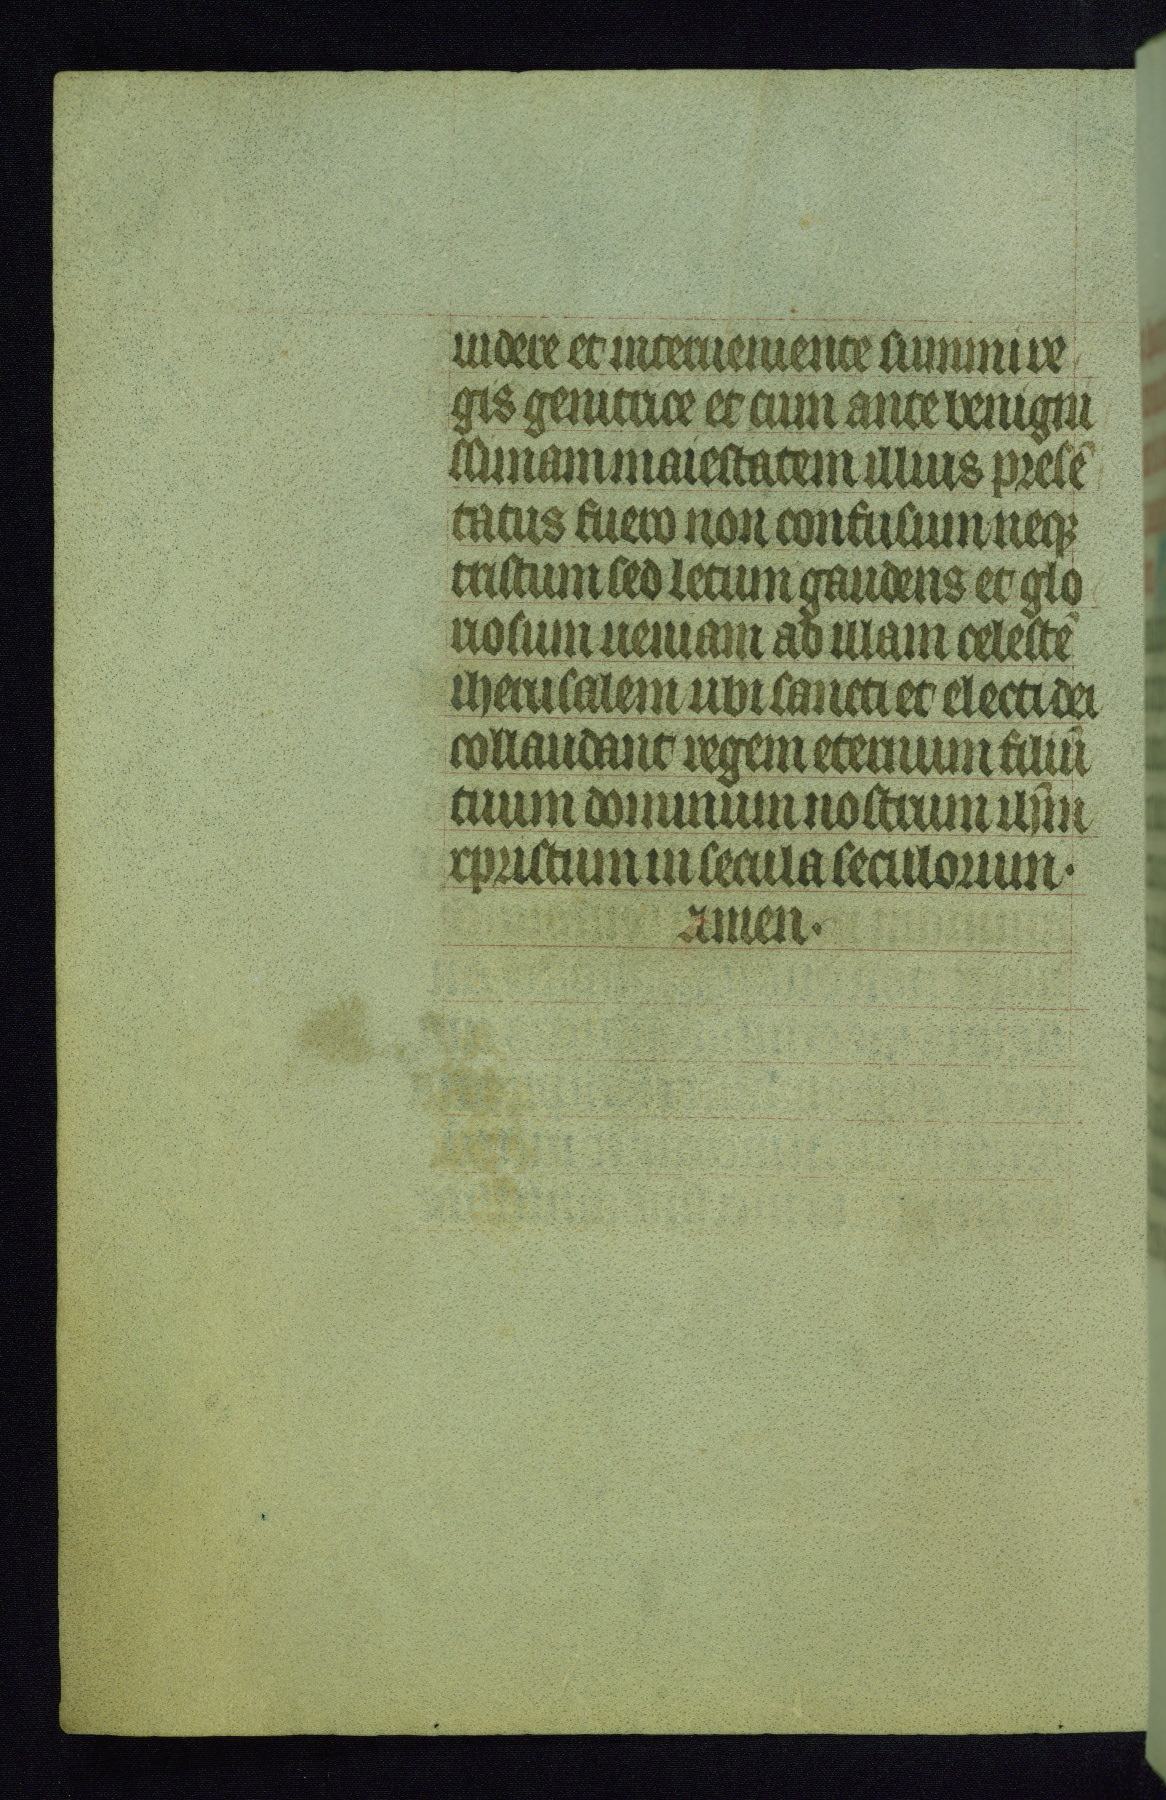 uidere et interueniente summi re
gis genitrice et cum ante benigni
ssimam maiestatem illius presē
tatus fuero non confusum neqꝫ
tristum sed letum gaudens et glo
riosum ueniam ad illam celestē
iherusalem ubi sancti et electi dei
collaudant regem eternum filiū
tuum dominum nostrum ihm̄
xpristum in secula seculorum·
amen·